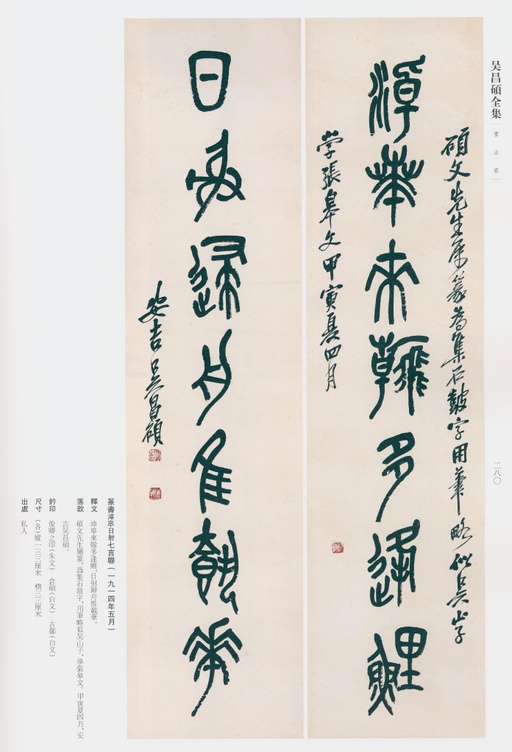 吴昌碩全集
書法卷
二八〇
碩文先生属篆為集石鼓字用筆略似吳山子
淖華来翰多逢鯉
學張皋文甲寅夏四月
日射歸舟隹載華
安吉吳昌碩
篆書淖華日射七言聯（一九一四年五月）
釋文 淖華來翰多逢鯉，日射歸舟惟載華。
落款 碩文先生屬篆，爲集石鼓字，用筆略似吳山子，學張皋文。甲寅夏四月，安
吉吳昌碩。
鈐印 俊卿之印（朱文） 倉碩（白文） 古鄣（白文）
尺寸 （各）縱一三三厘米 橫三三厘米
出處 私人